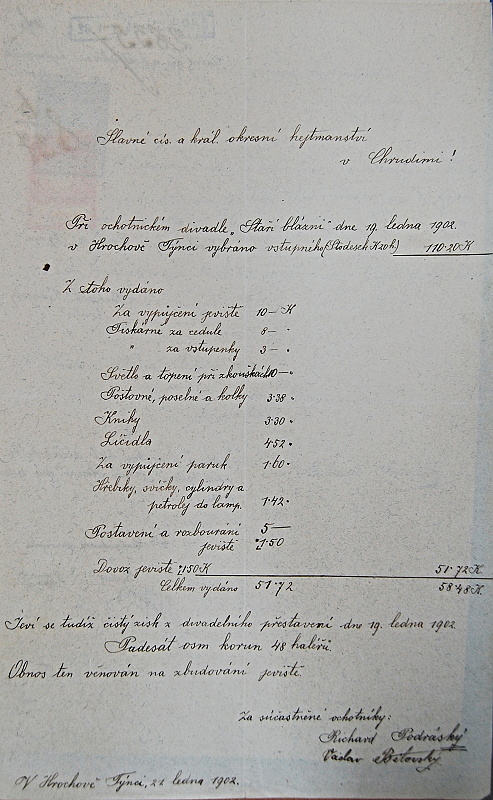 Slavné cís. a král. okresní hejtmanství
v Chrudimi!
Při ochotnickém divadle „Staří blázni" dne 19. ledna 1902.
v Hrochově Týnci vybráno vstupného (Stodeset K 20 h.) 110·20 K
Z toho vydáno
Za vypůjčení jeviště 10— K
Tiskárně za cedule 8— "
" za vstupenky 3— "
Světlo a topení při zkouškách 10— "
Poštovné, poselné a kolky 3·38 "
Knihy 3·30 "
Líčidla 4·52 "
Za vypůjčení paruk 1·60 "
Hřebíky, svíčky, cylindry a
petrolej do lamp. 1·42 "
Postavení a rozbourání 5—
jeviště 1·50
Dovoz jeviště 1·50 K 51·72 K
Celkem vydáno 51·72 58·48 K
Jeví se tudíž čistý zisk z divadelního přestavení dne 19. ledna 1902.
Padesát osm korun 48 haléřů.
Obnos ten věnován na zbudování jeviště.
Za súčastněné ochotníky:
Richard Podráský
Václav
V Hrochově Týnci, 21 ledna 1902.